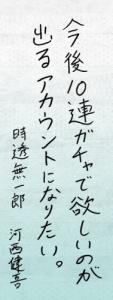 今後10連ガチャで欲しいのが
出るアカウントになりたい。
時透無一郎 河西健吾